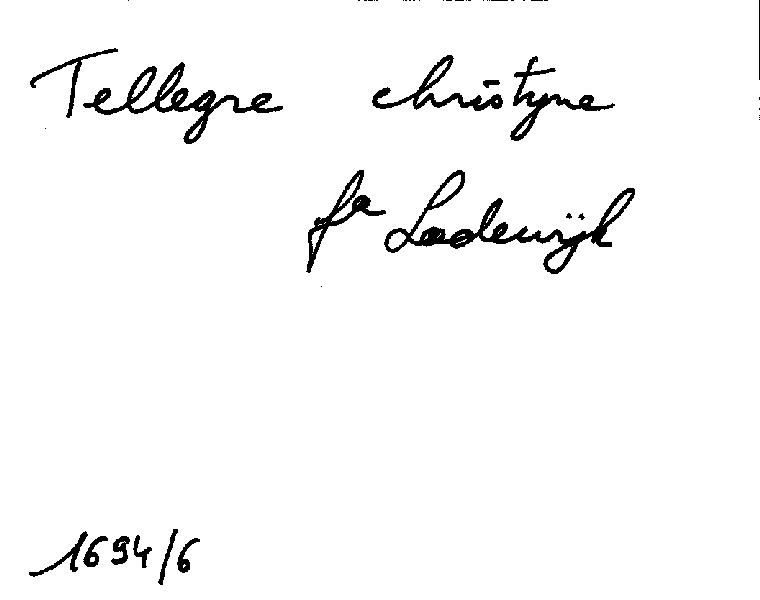 Tellegre christyne
fa Lodewijk
1694/6